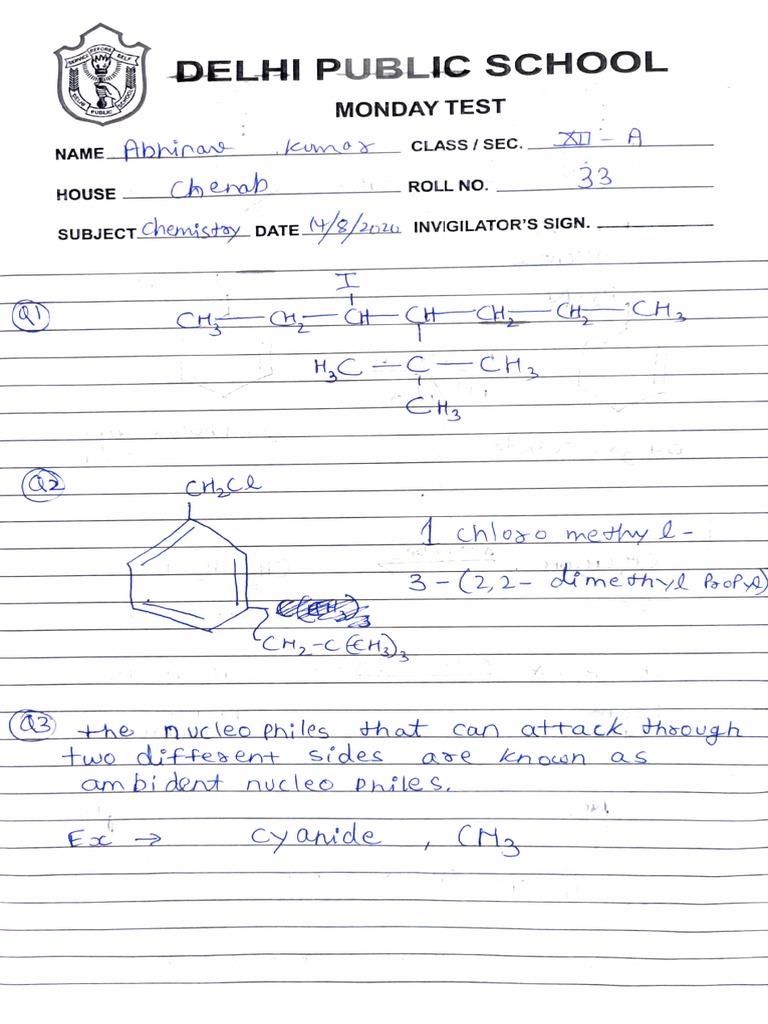 SERVICE BEFORE SELF
DELHI PUBLIC SCHOOL
DELHI PUBLIC SCHOOL
MONDAY TEST
NAME Abhinav Kumar CLASS / SEC. XII - A
HOUSE Chenab ROLL NO. 33
SUBJECT Chemistry DATE 14/8/2020 INVIGILATOR'S SIGN.
I
Q1 CH3 — CH2 — CH — CH — CH2 — CH2 — CH3
H3C — C — CH3
CH3
Q2 CH2Cl
1 chloro methyl-
3-(2,2- dimethyl propyl)
CH2-C(CH3)3
Q3 the nucleophiles that can attack through
two different sides are known as
ambident nucleo philes.
Ex → cyanide , CH3